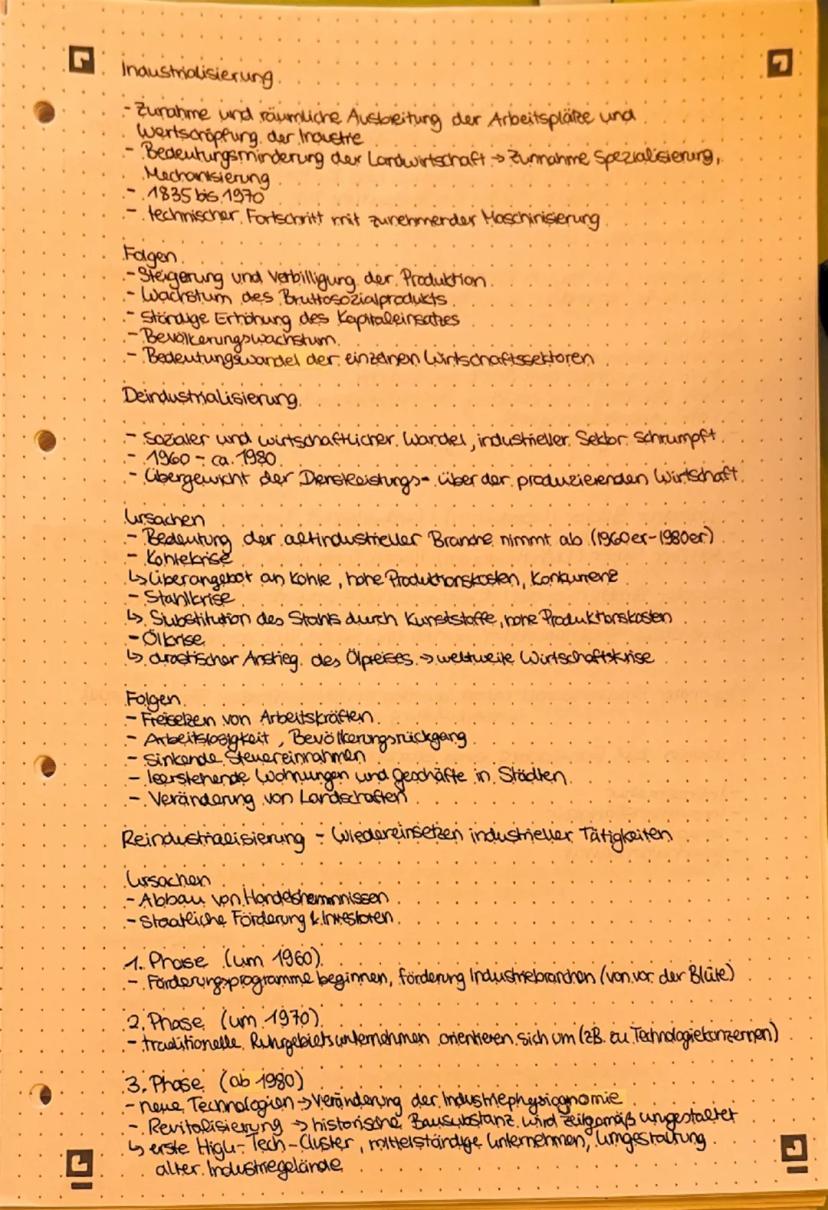 Industrialisierung
- Zunahme und räumliche Ausbreitung der Arbeitsplätze und
Wertschöpfung der Industrie
- Bedeutungsminderung der Landwirtschaft → Zunnahme Spezialisierung,
Mechanisierung
- 1835 bis 1970
- technischer Fortschritt mit zunehmender Maschinisierung
Folgen
- Steigerung und Verbilligung der Produktion
- Wachstum des Bruttosozialprodukts
- Ständige Erhöhung des Kapitaleinsatzes
- Bevölkerungswachstum
- Bedeutungswandel der einzelnen Wirtschaftssektoren
Deindustrialisierung
- sozialer und wirtschaftlicher Wandel, industrieller Sektor schrumpft
- 1960 - ca. 1980
- Übergewicht der Dienstleistungs- über der produzierenden Wirtschaft
Ursachen
- Bedeutung der altindustrieller Branche nimmt ab (1960er-1980er)
- Kohlekrise
↳ Überangebot an Kohle, hohe Produktionskosten, Konkurrenz
- Stahlkrise
↳ Substitution des Stahls durch Kunststoffe, hohe Produktionskosten
- Ölkrise
↳ drastischer Anstieg des Ölpreises → weltweite Wirtschaftskrise
Folgen
- Freisetzen von Arbeitskräften
- Arbeitslosigkeit, Bevölkerungsrückgang
- sinkende Steuereinnahmen
- leerstehende Wohnungen und Geschäfte in Städten
- Veränderung von Landschaften
Reindustrialisierung - Wiedereinsetzen industrieller Tätigkeiten
Ursachen
- Abbau von Handelshemmnissen
- Staatliche Förderung & Investoren
1. Phase (um 1960)
- Förderungsprogramme beginnen, förderung Industriebranchen (von vor der Blüte)
2. Phase (um 1970)
- traditionelle Ruhrgebietsunternehmen orientieren sich um (zB. zu Technologiekonzernen)
3. Phase (ab 1980)
- neue Technologien → Veränderung der Industriephysiognomie
- Revitalisierung → historische Bausubstanz wird zeitgemäß umgestaltet
↳ erste High-Tech-Cluster, mittelständige Unternehmen, Umgestaltung
alter Industriegelände